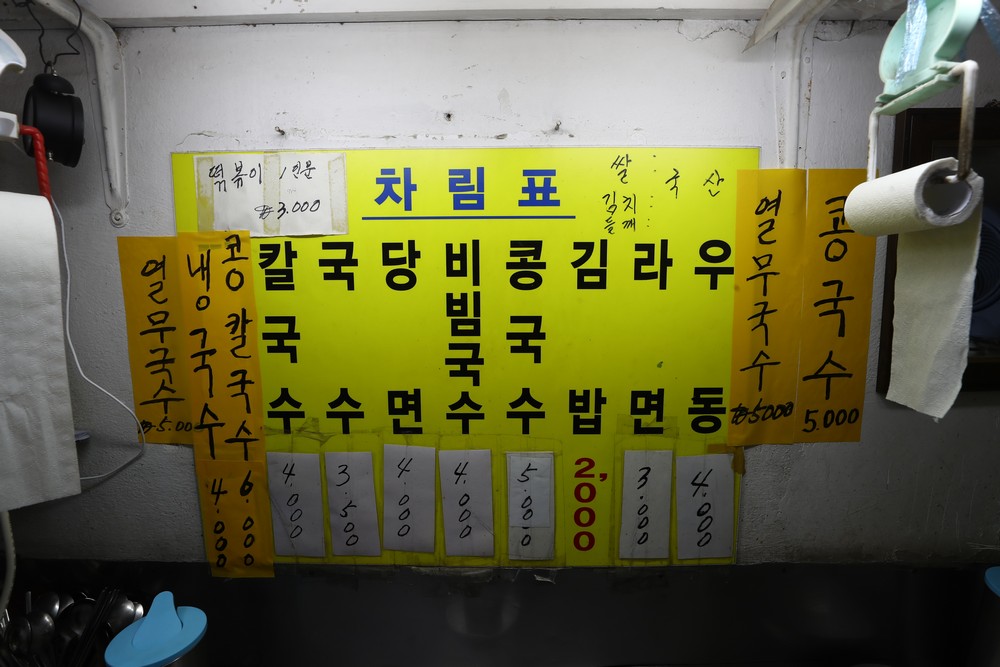 차림표
떡볶이 1인분
₩3.000
쌀 :
김치 :
들깨 :
국산
열무국수 ₩5.000
냉국수 4.000
콩칼국수 6.000
칼국수 4.000
국수 3.500
당면 4.000
비빔국수 4.000
콩국수 5.000
김밥 2,000
라면 3.000
우동 4.000
열무국수 ₩5000
콩국수 5.000